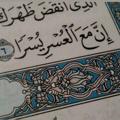 الَّذِىٓ أَنقَضَ ظَهْرَكَ
إِنَّ مَعَ ٱلْعُسْرِ يُسْرًا ٦